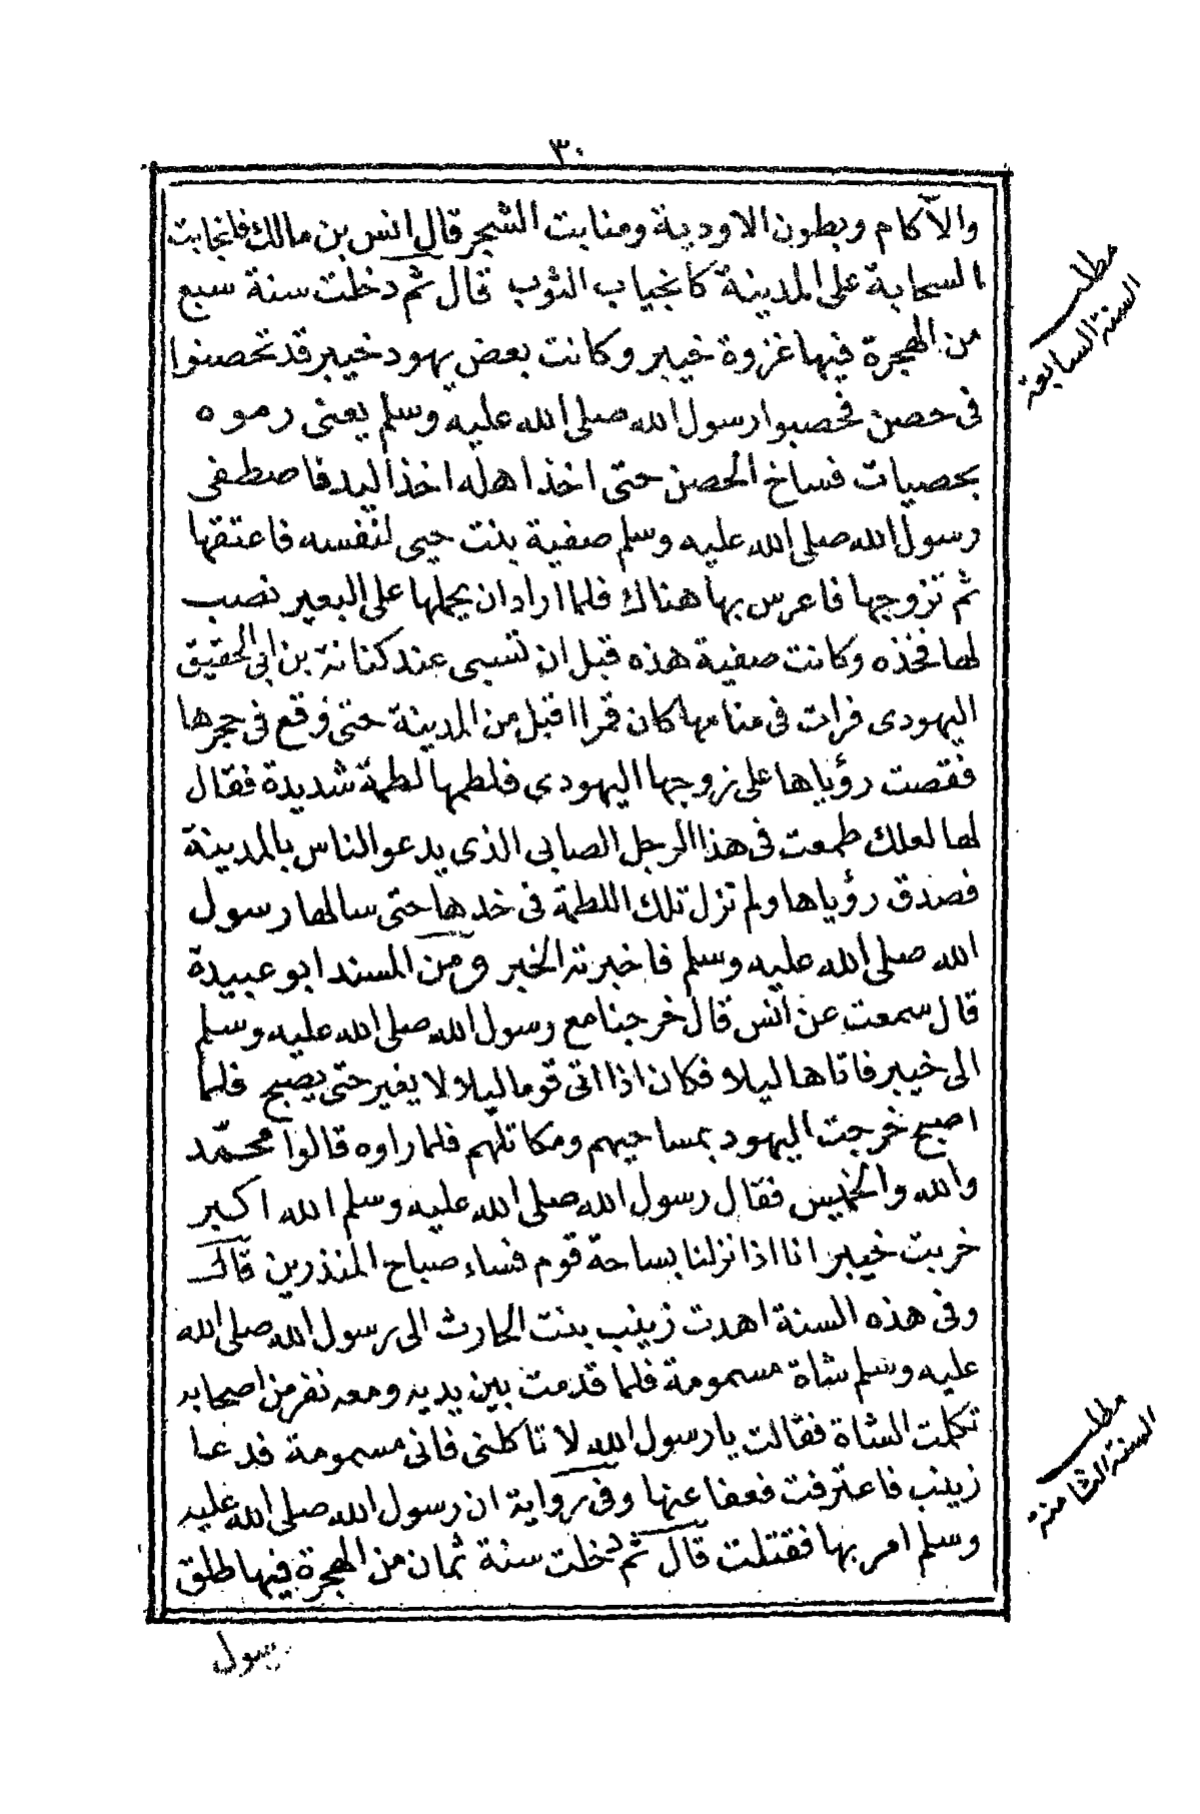 ٣٠
والآكام وبطون الاودية ومنابت الشجر قال انس بن مالك فانجابت
السحابة على المدينة كانجياب الثوب قال ثم دخلت سنة سبع
من الهجرة فيها غزوة خيبر وكانت بعض يهود خيبر قد تحصنوا
فى حصن فحصبوا رسول الله صلى الله عليه وسلم يعنى رموه
بحصيات فساخ الحصن حتى اخذ اهله اخذ اليد فاصطفى
رسول الله صلى الله عليه وسلم صفية بنت حيى لنفسه فاعتقها
ثم تزوجها فاعرس بها هناك فلما اراد ان يحملها على البعير نصب
لها فخذه وكانت صفية هذه قبل ان تسبى عند كنانة بن ابى الحقيق
اليهودى فرات فى منامها كان قمرا اقبل من المدينة حتى وقع فى حجرها
فقصت رؤياها على زوجها اليهودى فلطمها لطمة شديدة فقال
لها لعلك طمعت فى هذا الرجل الصابى الذى يدعو الناس بالمدينة
فصدق رؤياها ولم تزل تلك اللطمة فى خدها حتى سالها رسول
الله صلى الله عليه وسلم فاخبرته الخبر ومن المسند ابو عبيدة
قال سمعت عن انس قال خرجنا مع رسول الله صلى الله عليه وسلم
الى خيبر فاتاها ليلا فكان اذا اتى قوما ليلا لا يغير حتى يصبح فلما
اصبح خرجت اليهود بمساحيهم ومكاتلهم فلما راوه قالوا محمّد
والله والخميس فقال رسول الله صلى الله عليه وسلم الله اكبر
خربت خيبر انا اذا نزلنا بساحة قوم فساء صباح المنذرين قال
وفى هذه السنة اهدت زينب بنت الحارث الى رسول الله صلى الله
عليه وسلم شاة مسمومة فلما قدمت بين يديه ومعه نفر من اصحابه
تكلمت الشاة فقالت يا رسول الله لا تاكلنى فانى مسمومة فدعا
زينب فاعترفت فعفا عنها وفى رواية ان رسول الله صلى الله عليه
وسلم امر بها فقتلت قال ثم دخلت سنة ثمان من الهجرة فيها طلق
رسول
مطلب
السنة السابعة
مطلب
السنة الثامنة